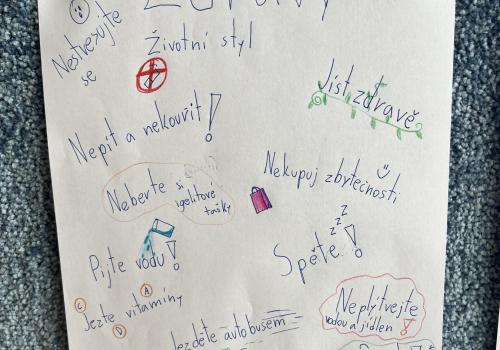 Nestresujte
se
Životní styl
Jíst zdravě
Nepít a nekouřit!
Nekupuj zbytečnosti
Neberte si
igelitové
tašky
zzz
Spěte!
Pijte vodu!
A
C
Jezte vitamíny
D
Neplýtvejte
vodou a jídlem!
Jezděte autobusem